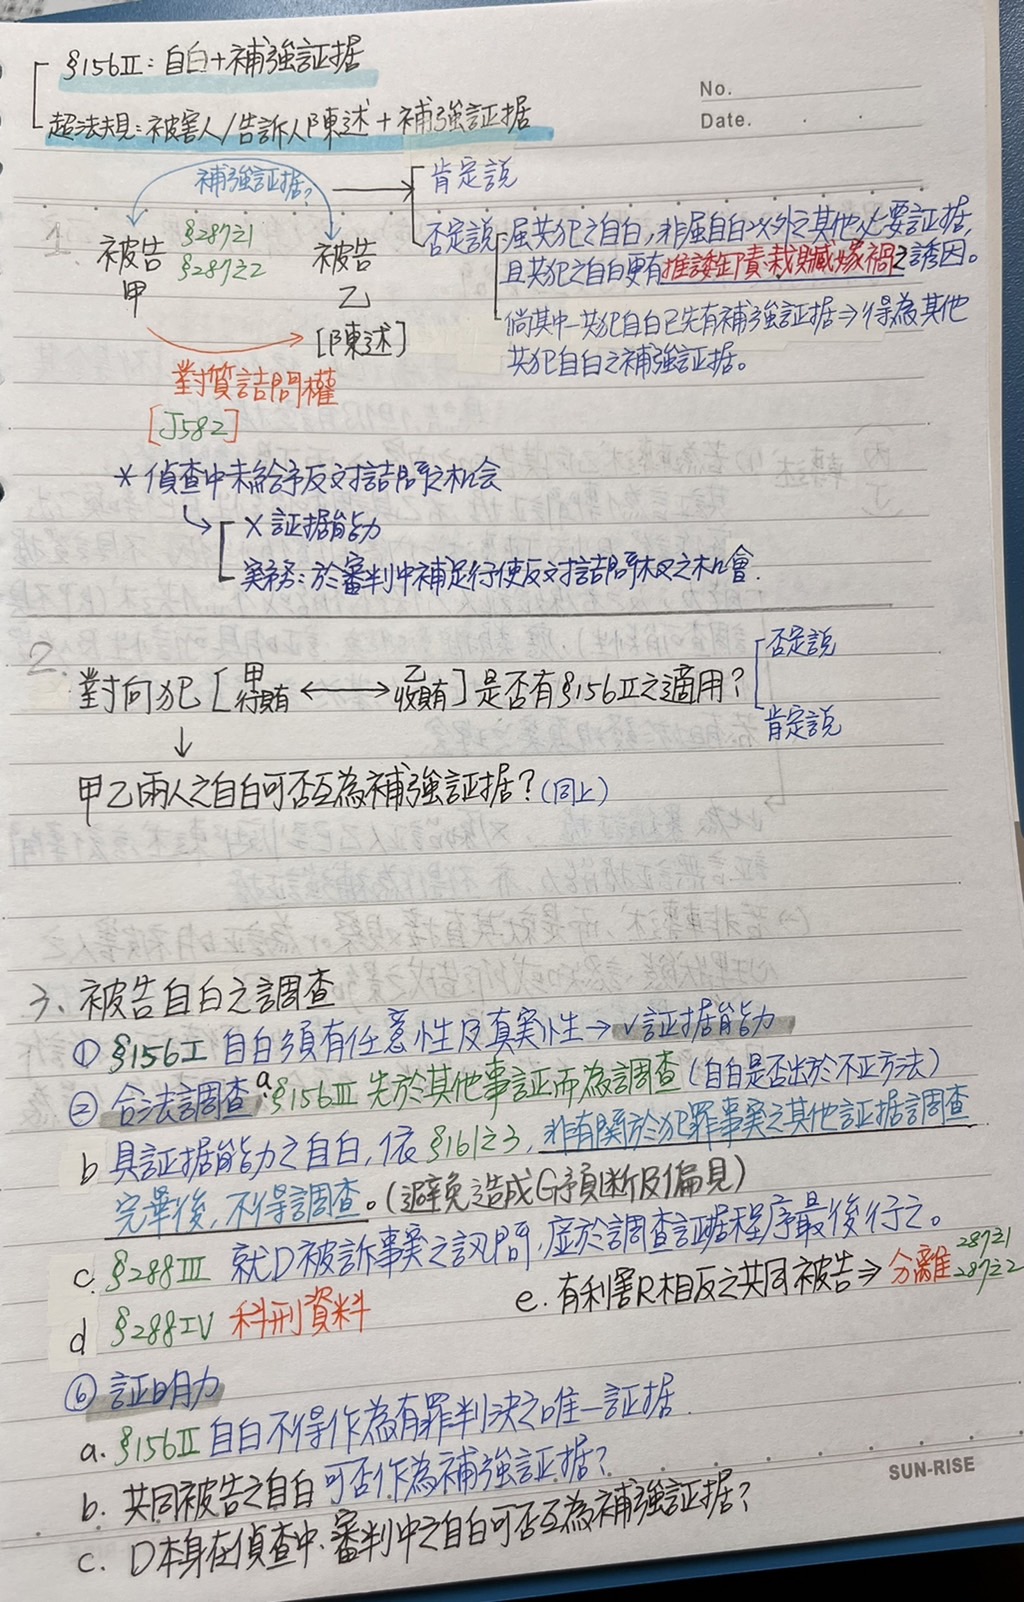 §156Ⅱ：自白+補強証据
超法規：被害人/告訴人陳述+補強証据
No.
Date.
補強証据?
肯定說
1.
被告 §287之1 被告
甲 §287之2 乙
[陳述]
否定說：屬共犯之自白，非屬自白以外之其他必要証据，
且共犯之自白更有推諉卸責、栽贓嫁禍之誘因。
倘其中一共犯自白已先有補強証据⇒得為其他
共犯自白之補強証据。
對質詰問權
[J582]
* 偵查中未給予反对詰問之机会
X 証据能力
実務：於審判中補足行使反对詰問权之机會.
2.
對向犯[甲行賄 ⟷ 乙收賄]是否有§156Ⅱ之適用?
否定說
肯定說
↓
甲乙兩人之自白可否互為補強証据?(同上)
3、被告自白之調查
① §156Ⅰ 自白須有任意性及真実性→ ✓証据能力
② 合法調查 a.§156Ⅲ 先於其他事証而為調查(自白是否出於不正方法)
b 具証据能力之自白，依§161之3，非有關於犯罪事実之其他証据調查
完畢後，不得調查。(避免造成G予預断及偏見)
c. §288Ⅲ 就D被訴事実之訊問，應於調查証据程序最後行之。
d §288Ⅳ 科刑資料
e. 有利害R相反之共同被告⇒分離 287之1
287之2
⑥ 証明力
a. §156Ⅱ 自白不得作為有罪判決之唯一証据.
b. 共同被告之自白可否作為補強証据?
c. D本身在偵查中、審判中之自白可否互為補強証据?
SUN-RISE